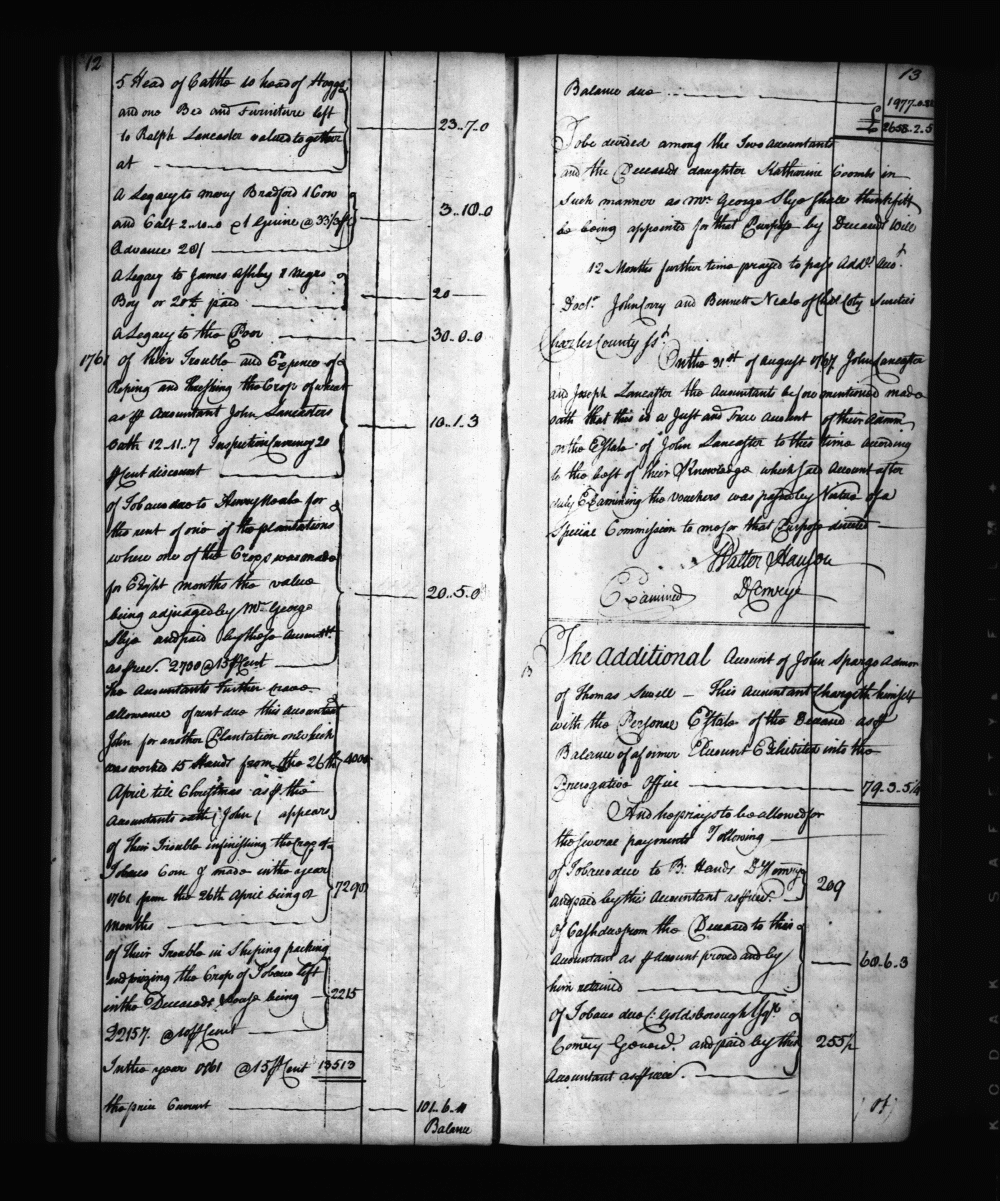 12
5 Head of Cattle 10 head of Hoggs
and one Bed and Furniture left
to Ralph Lancaster valued together
at 23..7..0
A Legacy to Mary Bradford 1 Cow
and Calf 2..10..0 & 1 Guine @ 33/3 3..18..0
Advance 20/
A Legacy to James Ashby 1 Negro
Boy or 20£ paid 20
A Legacy to the Poor 30..0..0
1761 of their Trouble and Expence of
Reping and Threshing the Crop of wheat
as ⅌ Accountant John Lancasters 10..1..3
Oath 12..11..7 Inspection Currency 20
⅌ Cent discount
of Tobacco due to Henry Neale for
the rent of one of the plantations
where one of the Crops was made
for Eight months the value 20..5..0
being adjudged by Mr. George
Slye and paid by these Accountts.
as ⅌ rec. 2700 @ 15 ⅌ Cent
the Accountants Further crave
allowance of rent due this Accountant
John for another Plantation on which
was worked 15 Hands from the 26th 4000
April till Christmas as ⅌ this
Accountants oath (John) appears
of Their Trouble in finishing the Crop of
Tobacco Corn & made in the year
1761 from the 26th April being 8 7290
Months
of Their Trouble in Shiping packing
and prizing the Crop of Tobacco left
in the Deceaseds House being 2215
22157. @ 10 ⅌ Cent
In the year 1761 @ 15 ⅌ Cent 13513
the price Current 101..6..11
Balance
13
Balance due 1977..0..
£ 2658..2..5
To be divided among the Two Accountants
and the Deceaseds daughter Katharine Coombs in
Such manner as Mr. George Slye shall think fitt
he being appointed for that Purpose by Deceaseds Will
12 Months further time prayed to pass Addl. Acct.
Doctr. John Corry and Bennett Neale of Chs. Coty Sureties
Charles County Sst.
On the 31st of August 1767 John Lancaster
and Joseph Lancaster the Accountants before mentioned made
oath that this is a Just and True Account of their Admn.
on the Estate of John Lancaster to this time According
to the best of their Knowledge which said Account after
duly Examining the Vouchers was passed by Vertue of a
Special Commission to me for that Purpose directed
Walter Hanson
Examined D Comrys
13 The Additional Account of John Spargo Admor.
of Thomas Sewell — This Accountant Chargeth himself
with the Personal Estate of the Deceased as ⅌
Balance of a former Account Exhibited into the
Prerogative Office 79..3..5¼
And he prays to be allowed for
the several payments Following
of Tobacco due to B. Hands D Comrys 209
and paid by this Accountant as ⅌ rec.
of Cash due from the Deceased to this
Accountant as ⅌ account proved and by 68..6..3
him retained
of Tobacco due C. Goldsborough Esqr.
Comry General. and paid by this 255½
Accountant as ⅌ rec.
of